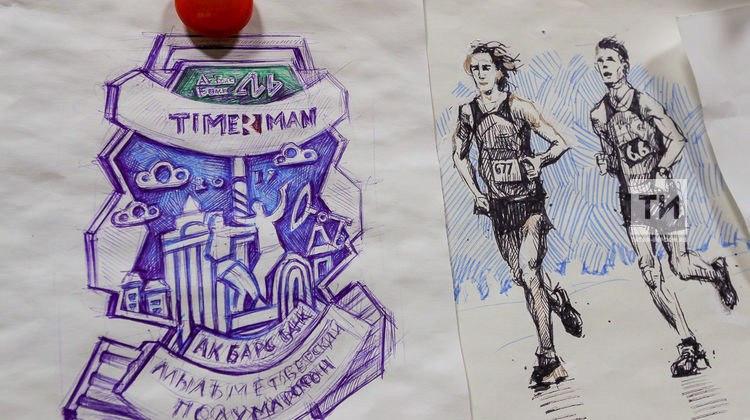 Ак Барс
Банк
TIMERMAN
АК БАРС БАНК
АЛЬМЕТЬЕВСКИЙ
ПОЛУМАРАФОН
677
66
ТИ